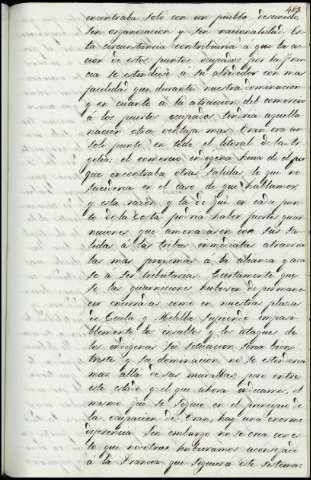 453
encontraba solo con un pueblo desunido,
sin organizacion y sin nacionalidad. Es-
ta circunstancia contribuiria a que la ac-
cion de estos puntos ocupados por la Fran-
cia se estendiese á su alrededor con mas
facilidad que durante nuestra dominacion
y en cuanto á la atraccion del comercio
á los puertos ocupados tendria aquella
nacion otra ventaja mas. Oran era un
solo punto en todo el litoral de la Ar-
gelia, el comercio indigena huia de el por
que encontraba otras salidas, lo que no
sucederia en el caso de que hablamos
y esta razon y la de que en cada pun-
to de la costa podria haber fuertes guar-
niciones que amenazasen con sus sa-
lidas á las tribus inmediatas atraeria
las mas procsimas á la alianza y aca-
so á ser tributarias. Ciertamente que
si las guarniciones hubieran de permane-
cer encerradas como en nuestras plazas
de Ceuta y Melilla sufriendo impasi-
blemente los insultos y los ataques de
los indigenas su situacion seria bien
triste y su dominacion no se estenderia
mas allá de sus murallas, pero entre
este estado y el que ahora indicamos, el
mismo que se siguió en el principio de
la ocupacion de Oran, hay una enorme
diferencia. Sin embargo no se crea con es-
to que nosotros hubieramos aconsejado
á la Francia que siguiera este sistema: